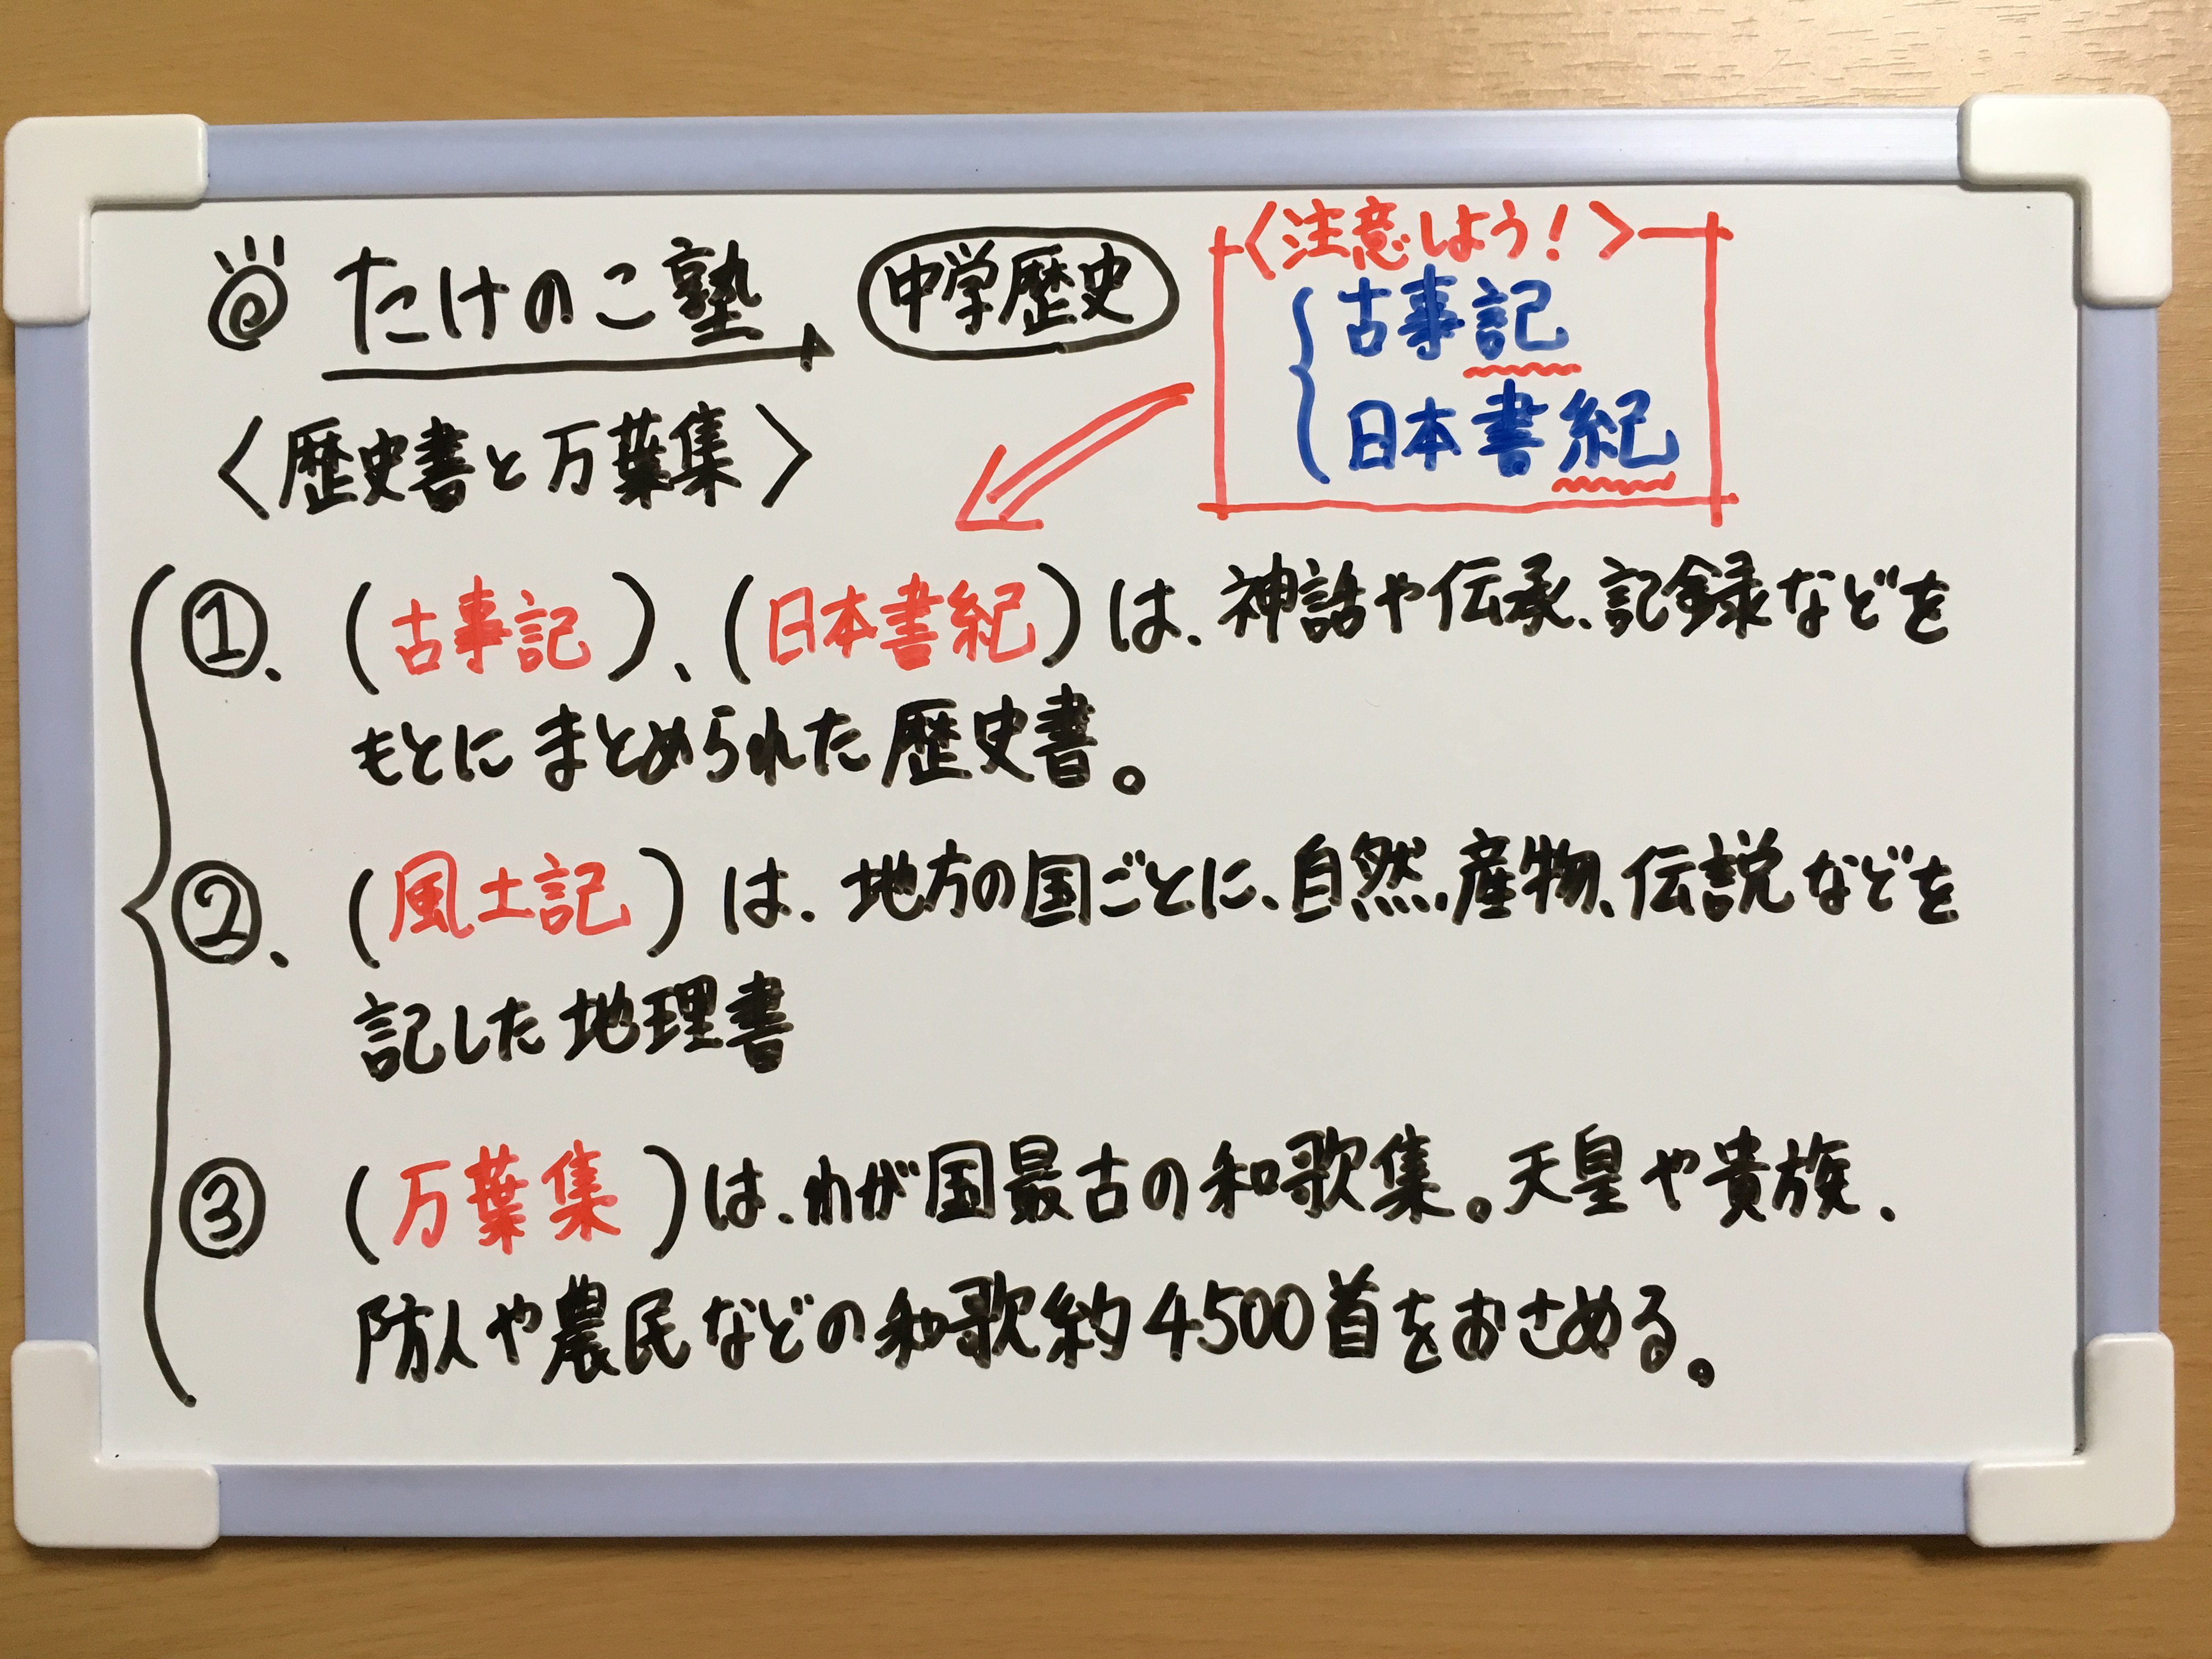 たけのこ塾 中学歴史
〈注意しよう!〉
古事記
日本書紀
〈歴史書と万葉集〉
①、(古事記)、(日本書紀)は、神話や伝承、記録などを
もとにまとめられた歴史書。
②、(風土記)は、地方の国ごとに、自然、産物、伝説などを
記した地理書
③(万葉集)は、わが国最古の和歌集。天皇や貴族、
防人や農民などの和歌約4500首をおさめる。